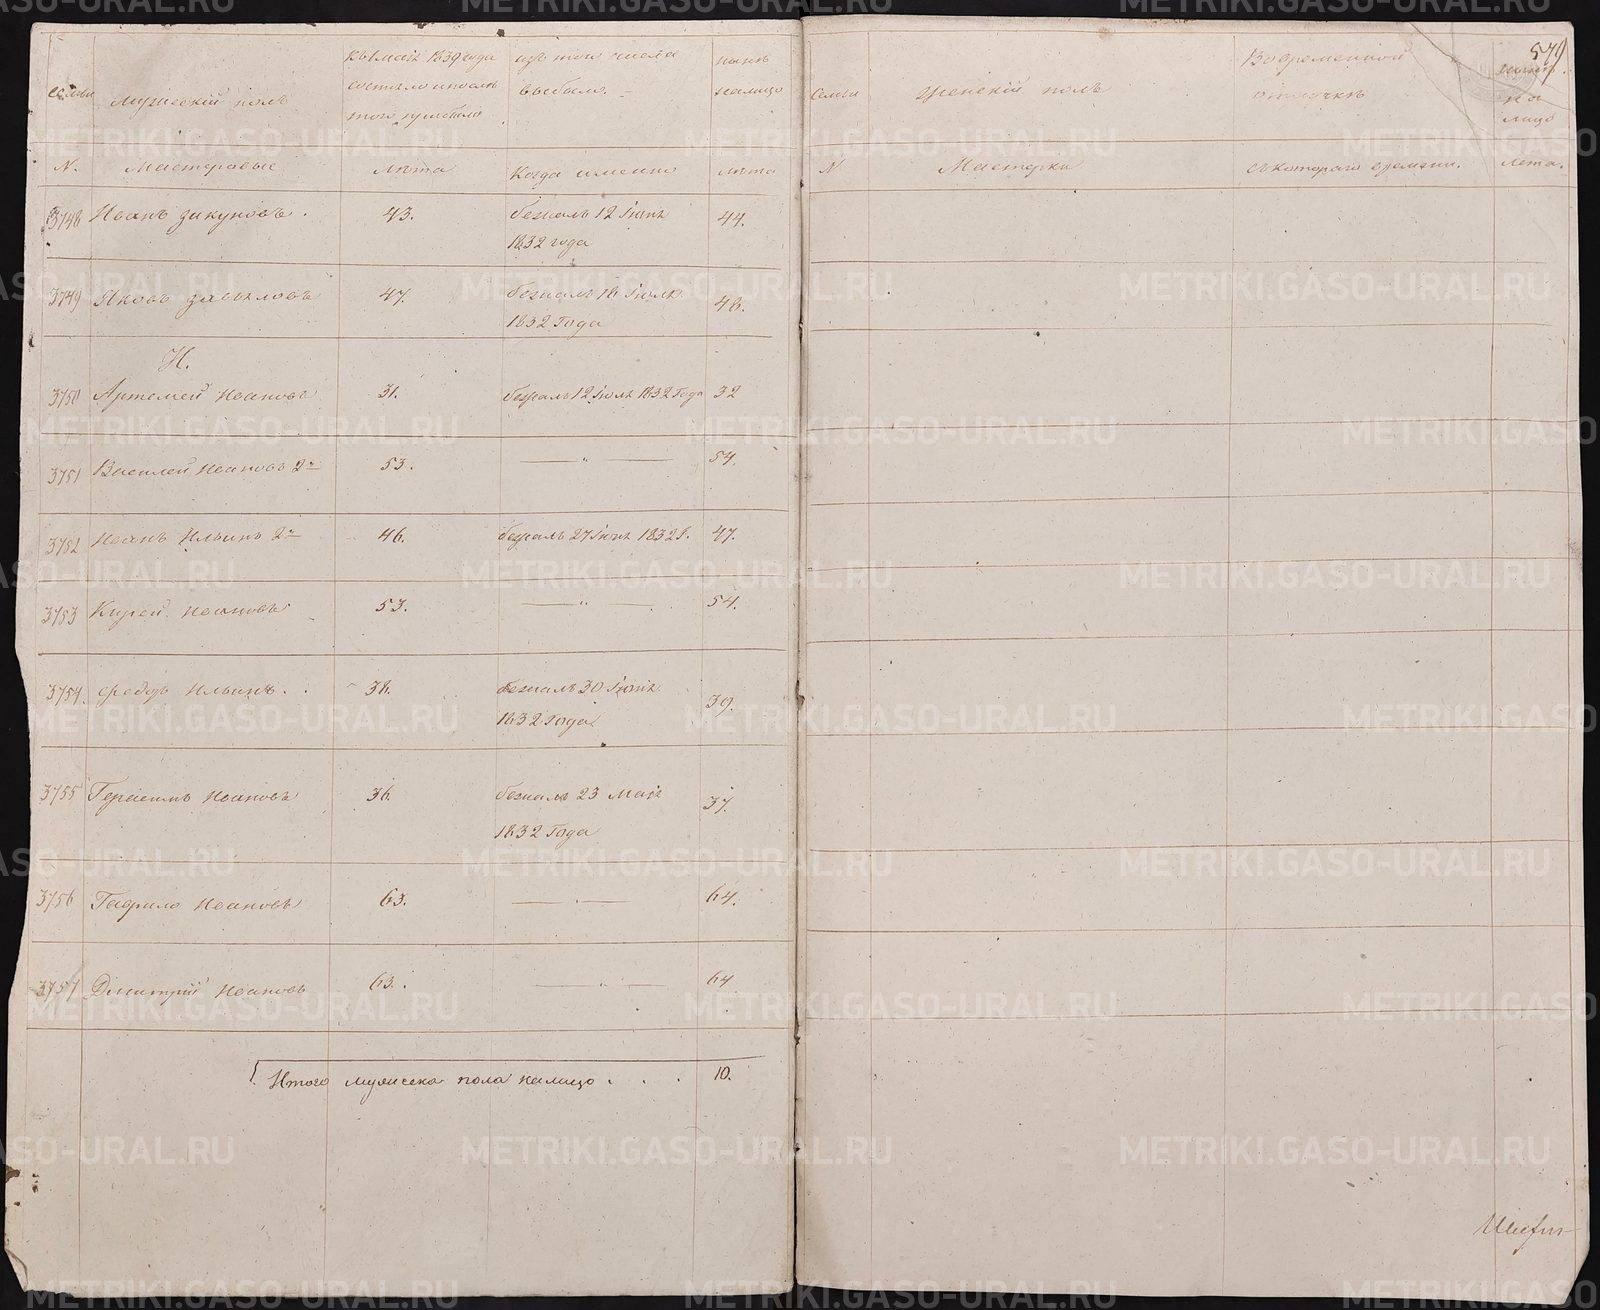 семьи
Мужескій полъ
къ 1 маія 1839 года
состояло и послѣ
того прибыло
изъ того числа
выбыло.
нынѣ
налицо
№.
Мастеровые
лѣта
Когда именно
лѣта
3748 Иванъ Закуновъ. 43. бежалъ 12 Іюня 44.
1832 года
3749 Яковъ 47. бежалъ 18 Іюля 48.
1832 Года
И.
3750 Артемей Ивановъ 31. бежалъ 12 Іюля 1832 Года 32
3751 Василей Ивановъ 2й 53. — " — 54.
3752 Иванъ Ильинъ 2й 46. бежалъ 27 Іюня 1832 г. 47.
3753 Кирей Ивановъ 53. — " — 54.
3754 Федоръ Ильинъ. 38. бежалъ 30 Іюня 39.
1832 Года
3755 Герасимъ Ивановъ 36. бежалъ 23 Маія 37.
1832 Года
3756 Гаврило Ивановъ 63. — " — 64.
3757 Дмитрій Ивановъ 63. — " — 64
Итого мужеска пола налицо . . . 10.
579
Семьи
Женскій полъ
Во временной
отлучкѣ
нынѣ
на
лицо
N
Мастерки
съ котораго времени.
Лета.
METRIKI.GASO-URAL.RU